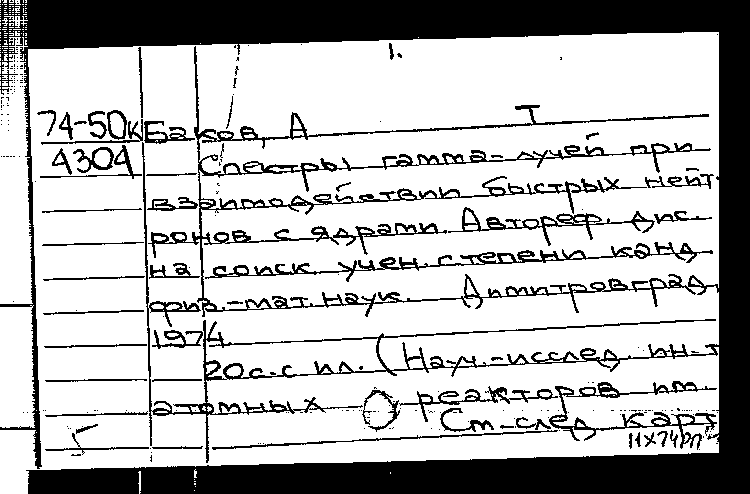 1.
74-50к Баков, А Т
4304 Спектры гамма-лучей при
взаимодействии быстрых нейт-
ронов с ядрами. Автореф. дис.
на соиск. учен. степени канд.
физ.-мат. наук. Димитровград,
1974.
20 с. с ил. (Науч.-исслед. ин-т
атомных реакторов им.
См. след. карт